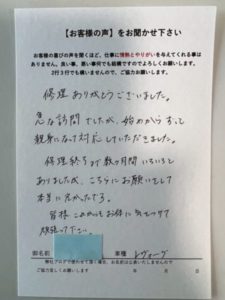 【お客様の声】をお聞かせ下さい
お客様の喜びの声を聞くほど、仕事に情熱とやりがいを与えてくれる事は
ありません。良い事、悪い事何でも結構ですのでよろしくお願いします。
2行3行でも構いませんので、ご協力お願いします。
修理ありがとうございました。
急な訪問でしたが、始めからずっと
親身になって対応していただきました。
修理終了まで数ヶ月間いろいろと
ありましたが、こちらにお願いをして
本当に良かったです。
皆様これからもお体に気をつけて
頑張って下さい。
御名前 車種 レヴォーグ
弊社ブログで使わせて頂く場合、お名前は公表いたしませんので
ご協力宜しくお願いします 年 月 日